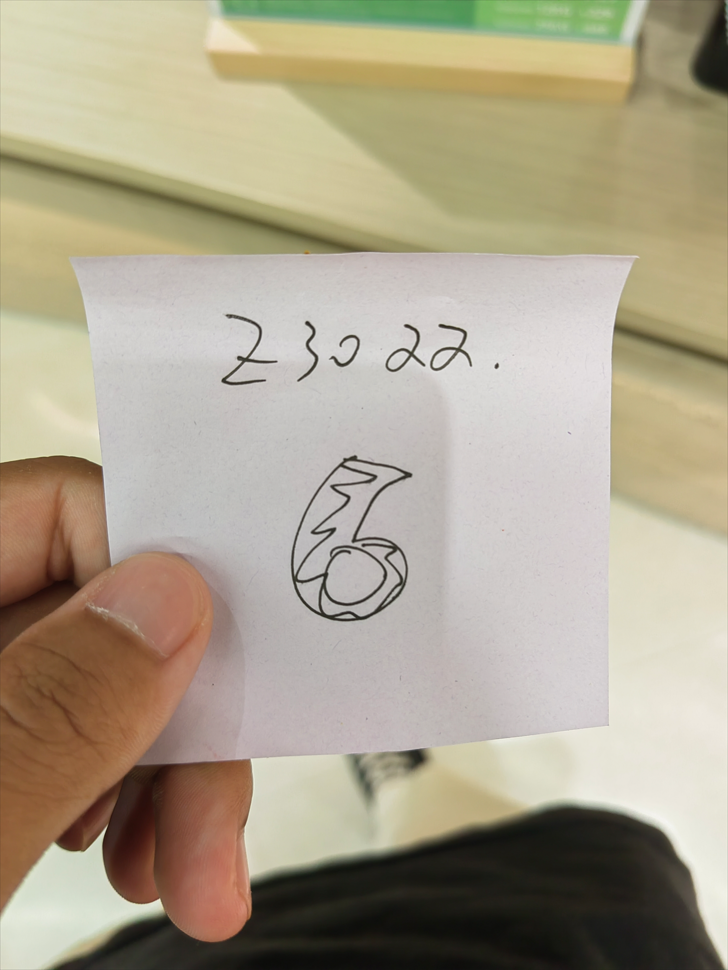 Z3022.
6